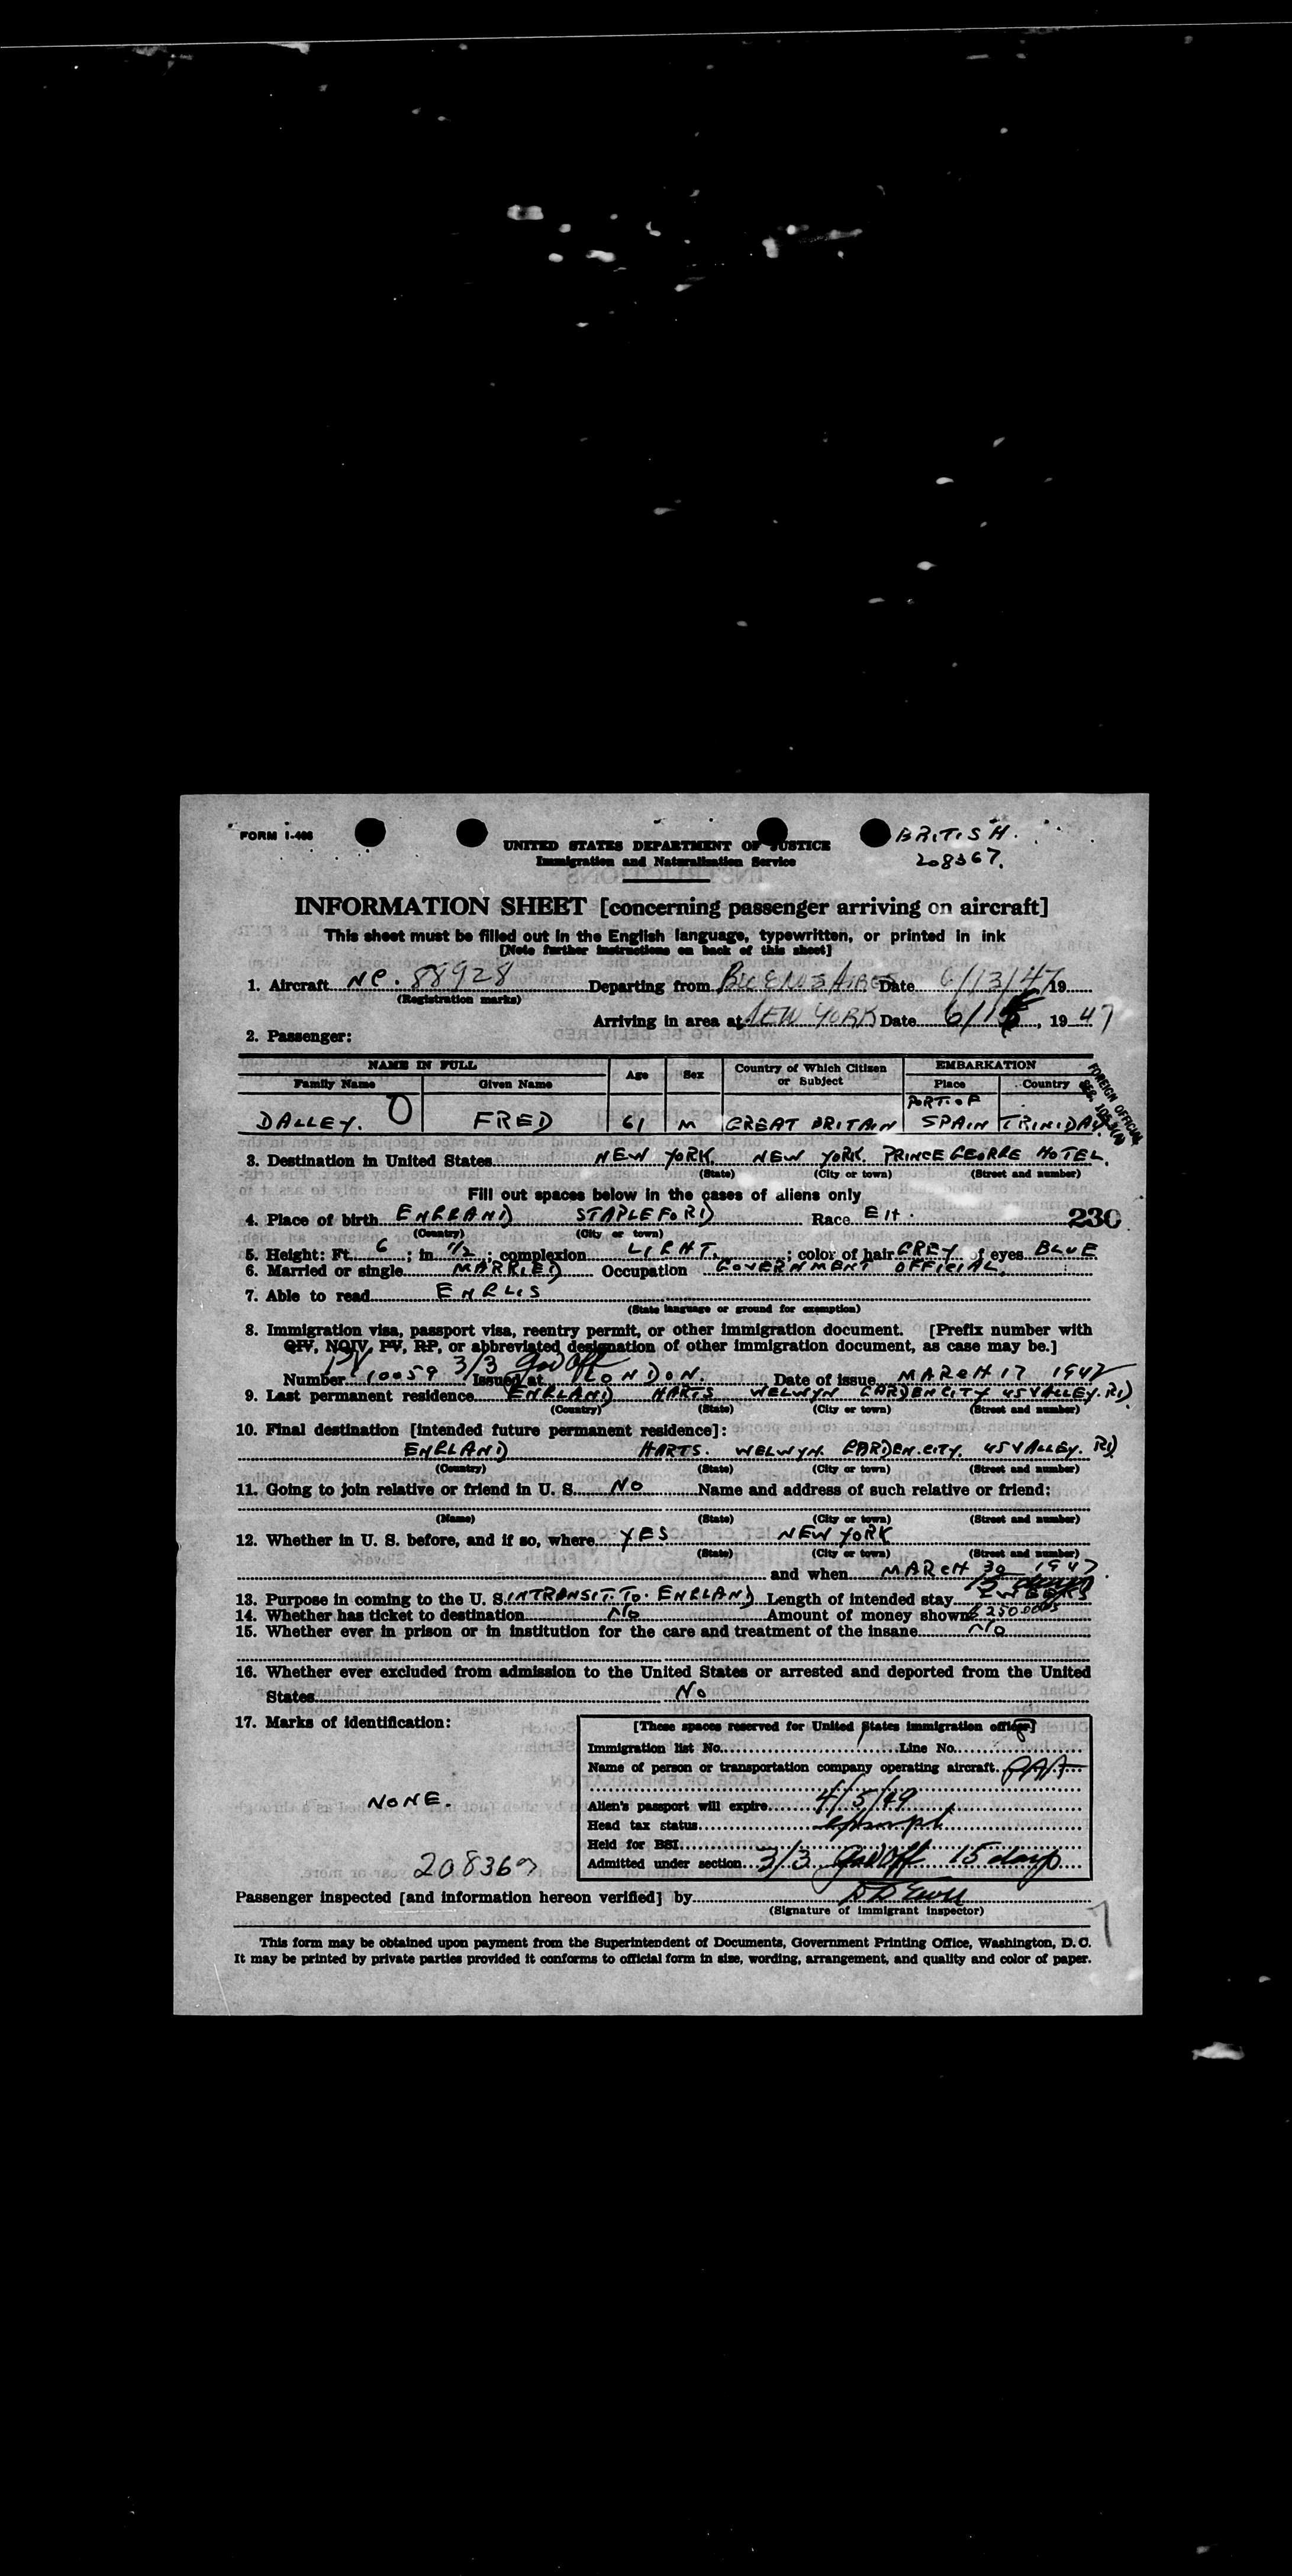 FORM I-466
BRITISH.
208367.
UNITED STATES DEPARTMENT OF JUSTICE
Immigration and Naturalization Service
INFORMATION SHEET [concerning passenger arriving on aircraft]
This sheet must be filled out in the English language, typewritten, or printed in ink
[Note further instructions on back of this sheet]
1. Aircraft NC. 88928 Departing from BUENOS AIRES Date 6/13/47 19
(Registration marks)
Arriving in area at NEW YORK Date 6/15, 19 47
2. Passenger:
NAME IN FULL Age Sex Country of Which Citizen or Subject EMBARKATION
Family Name Given Name Place Country
DALLEY. O FRED 61 M GREAT BRITAIN PORT. OF SPAIN TRINIDAD
FOREIGN OFFICIAL
3. Destination in United States NEW YORK. NEW YORK. PRINCE GEORGE HOTEL.
(State) (City or town) (Street and number)
Fill out spaces below in the cases of aliens only
4. Place of birth ENGLAND STAPLEFORD Race EH. 230
(Country) (City or town)
5. Height: Ft. 6 ; in 1/2 ; complexion LIGHT. ; color of hair GREY of eyes BLUE
6. Married or single MARRIED Occupation GOVERNMENT OFFICIAL.
7. Able to read ENGLIS
(State language or ground for exemption)
8. Immigration visa, passport visa, reentry permit, or other immigration document. [Prefix number with
QIV, NQIV, PV, RP, or abbreviated designation of other immigration document, as case may be.]
PV 3/3 Gov Off
Number 10059 Issued at LONDON. Date of issue MARCH 17 1947
9. Last permanent residence ENGLAND HARTS WELWYN GARDEN CITY 45 VALLEY. RD.
(Country) (State) (City or town) (Street and number)
10. Final destination [intended future permanent residence]:
ENGLAND HARTS. WELWYN. GARDEN. CITY. 45 VALLEY. RD
(Country) (State) (City or town) (Street and number)
11. Going to join relative or friend in U. S. NO Name and address of such relative or friend:
(Name) (State) (City or town) (Street and number)
12. Whether in U. S. before, and if so, where YES NEW YORK
(State) (City or town) (Street and number)
and when MARCH 30 1947.
15 days
13. Purpose in coming to the U. S. INTRANSIT. TO. ENGLAND Length of intended stay
14. Whether has ticket to destination No Amount of money shown
15. Whether ever in prison or in institution for the care and treatment of the insane No
16. Whether ever excluded from admission to the United States or arrested and deported from the United
States No
17. Marks of identification:
NONE.
208367
[These spaces reserved for United States immigration officer]
Immigration list No. Line No.
Name of person or transportation company operating aircraft. PAA
Alien's passport will expire 4/5/49
Head tax status
Held for BSI
Admitted under section 3/3 Gov Off 15 days
Passenger inspected [and information hereon verified] by
(Signature of immigrant inspector)
This form may be obtained upon payment from the Superintendent of Documents, Government Printing Office, Washington, D. C.
It may be printed by private parties provided it conforms to official form in size, wording, arrangement, and quality and color of paper.